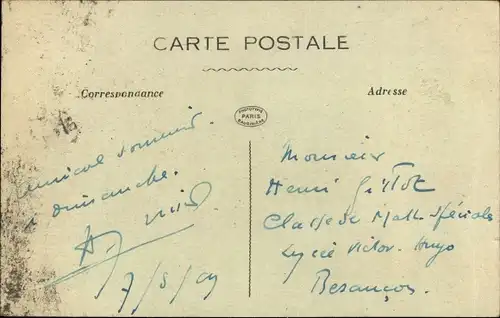 CARTE POSTALE
Correspondance
Adresse
PARIS
amical souvenir
dimanche.
Monsieur
Henri
Classe de Math Spéciales
Lycée Victor-Hugo
Besançon.